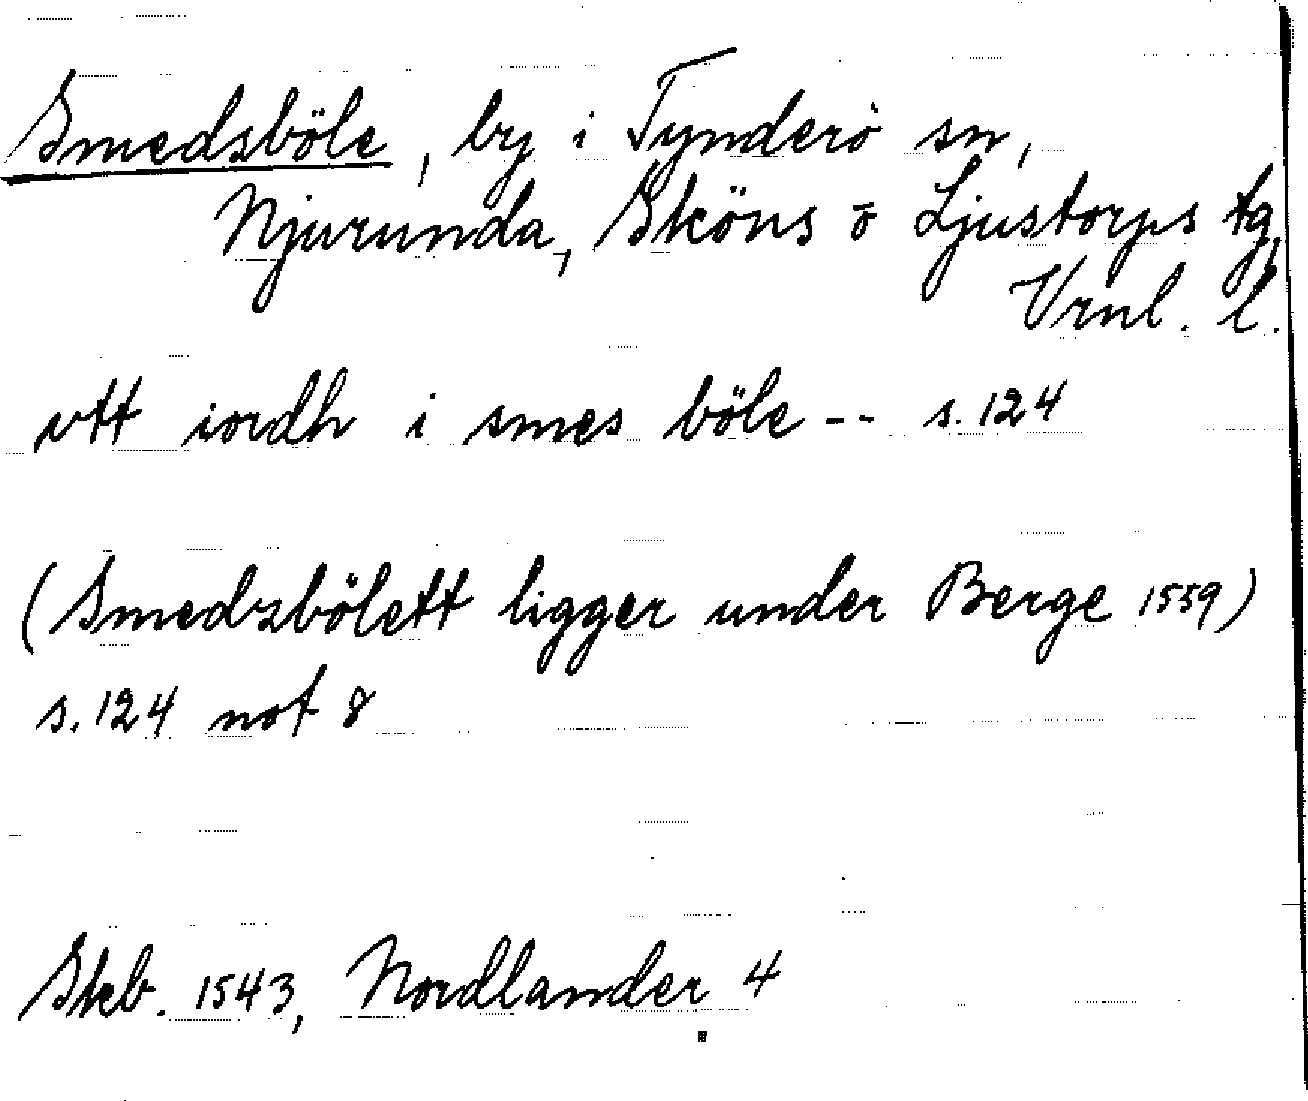 Smedsböle, by i Tynderö sn,
Njurunda, Sköns o Ljustorps tg,
Vrnl. l.
vtt iordh i smes böle -- s. 124
(Smedzbölett ligger under Berge 1559)
s. 124 not 8
Skb. 1543, Nordlander 4